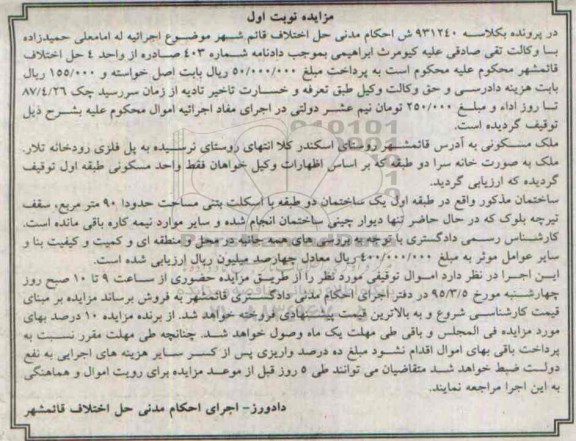 مزایده نوبت اول
در پرونده بکلاسه ۹۳۱۲۴۰ ش احکام مدنی حل اختلاف قائم شهر موضوع اجرائیه له امامعلی حمیدزاده
با وکالت تقی صادقی علیه کیومرث ابراهیمی بموجب دادنامه شماره ۴۰۳ صادره از واحد ۴ حل اختلاف
قائمشهر محکوم علیه محکوم است به پرداخت مبلغ ۵۰/۰۰۰/۰۰۰ ریال بابت اصل خواسته و ۱۵۵/۰۰۰ ریال
بابت هزینه دادرسی و حق وکالت وکیل طبق تعرفه و خسارت تاخیر تادیه از زمان سررسید چک ۸۷/۴/۲۶
تا روز اداء و مبلغ ۲۵۰/۰۰۰ تومان نیم عشر دولتی در اجرای مفاد اجرائیه اموال محکوم علیه بشرح ذیل
توقیف گردیده است.
ملک مسکونی به آدرس قائمشهر روستای اسکندر کلا انتهای روستای نرسیده به پل فلزی رودخانه تلار.
ملک به صورت خانه سرا دو طبقه که بر اساس اظهارات وکیل خواهان فقط واحد مسکونی طبقه اول توقیف
گردیده که ارزیابی گردید.
ساختمان مذکور واقع در طبقه اول یک ساختمان دو طبقه با اسکلت بتنی مساحت حدودا ۹۰ متر مربع، سقف
تیرچه بلوک که در حال حاضر تنها دیوار چینی ساختمان انجام شده و سایر موارد نیمه کاره باقی مانده است.
کارشناس رسمی دادگستری با توجه به بررسی های همه جانبه در محل و منطقه ای و کمیت و کیفیت بنا و
سایر عوامل موثر به مبلغ ۴۰۰/۰۰۰/۰۰۰ ریال معادل چهارصد میلیون ریال ارزیابی شده است.
این اجرا در نظر دارد اموال توقیفی مورد نظر را از طریق مزایده حضوری از ساعت ۹ تا ۱۰ صبح روز
چهارشنبه مورخ ۹۵/۳/۵ در دفتر اجرای احکام مدنی دادگستری قائمشهر به فروش برساند مزایده بر مبنای
قیمت کارشناسی شروع و به بالاترین قیمت پیشنهادی فروخته خواهد شد. از برنده مزایده ۱۰ درصد بهای
مورد مزایده فی المجلس و باقی طی مهلت یک ماه وصول خواهد شد. چنانچه طی مهلت مقرر نسبت به
پرداخت باقی بهای اموال اقدام نشود مبلغ ده درصد واریزی پس از کسر سایر هزینه های اجرایی به نفع
دولت ضبط خواهد شد متقاضیان می توانند طی ۵ روز قبل از موعد مزایده برای رویت اموال و هماهنگی
به این اجرا مراجعه نمایند.
دادورز- اجرای احکام مدنی حل اختلاف قائمشهر